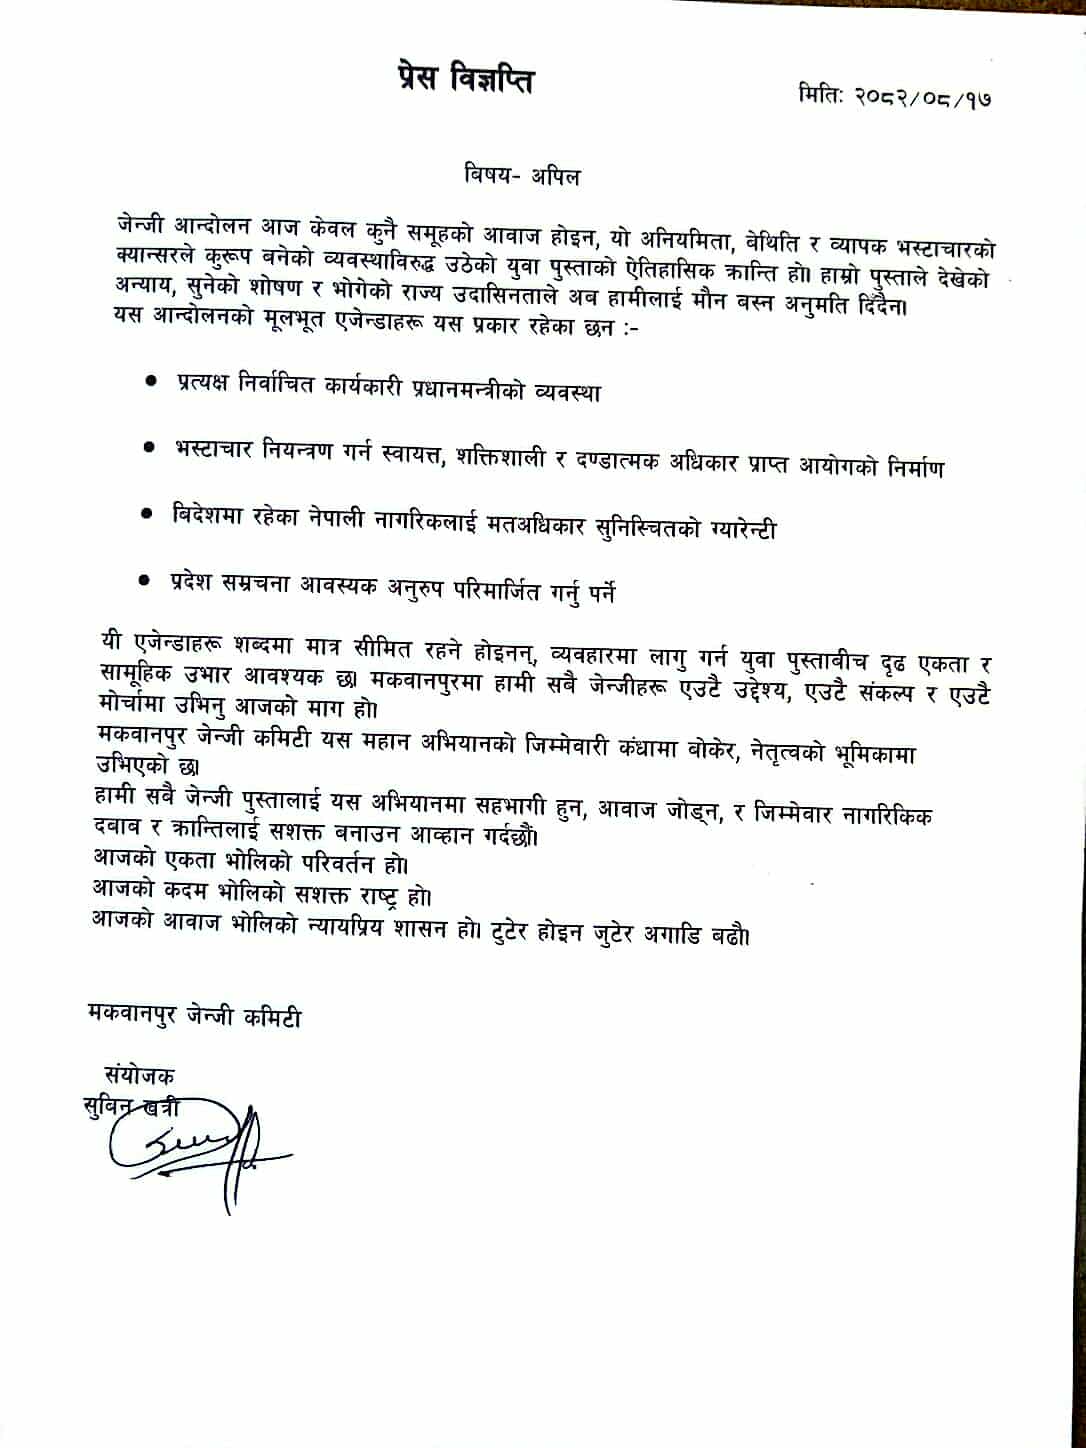 प्रेस विज्ञप्ति
मितिः २०८२/०८/१७
बिषय- अपिल
जेन्जी आन्दोलन आज केवल कुनै समूहको आवाज होइन, यो अनियमिता, बेथिति र व्यापक भस्टाचारको
क्यान्सरले कुरूप बनेको व्यवस्थाविरुद्ध उठेको युवा पुस्ताको ऐतिहासिक क्रान्ति हो। हाम्रो पुस्ताले देखेको
अन्याय, सुनेको शोषण र भोगेको राज्य उदासिनताले अब हामीलाई मौन बस्न अनुमति दिँदैन।
यस आन्दोलनको मूलभूत एजेन्डाहरू यस प्रकार रहेका छन :-
• प्रत्यक्ष निर्वाचित कार्यकारी प्रधानमन्त्रीको व्यवस्था
• भस्टाचार नियन्त्रण गर्न स्वायत्त, शक्तिशाली र दण्डात्मक अधिकार प्राप्त आयोगको निर्माण
• बिदेशमा रहेका नेपाली नागरिकलाई मतअधिकार सुनिस्चितको ग्यारेन्टी
• प्रदेश सम्रचना आवस्यक अनुरुप परिमार्जित गर्नु पर्ने
यी एजेन्डाहरू शब्दमा मात्र सीमित रहने होइनन्, व्यवहारमा लागु गर्न युवा पुस्ताबीच दृढ एकता र
सामूहिक उभार आवश्यक छ। मकवानपुरमा हामी सबै जेन्जीहरू एउटै उद्देश्य, एउटै संकल्प र एउटै
मोर्चामा उभिनु आजको माग हो।
मकवानपुर जेन्जी कमिटी यस महान अभियानको जिम्मेवारी कंधामा बोकेर, नेतृत्वको भूमिकामा
उभिएको छ।
हामी सबै जेन्जी पुस्तालाई यस अभियानमा सहभागी हुन, आवाज जोड्न, र जिम्मेवार नागरिकिक
दबाब र क्रान्तिलाई सशक्त बनाउन आव्हान गर्दछौं।
आजको एकता भोलिको परिवर्तन हो।
आजको कदम भोलिको सशक्त राष्ट्र हो।
आजको आवाज भोलिको न्यायप्रिय शासन हो। टुटेर होइन जुटेर अगाडि बढौ।
मकवानपुर जेन्जी कमिटी
संयोजक
सुबिन खत्री